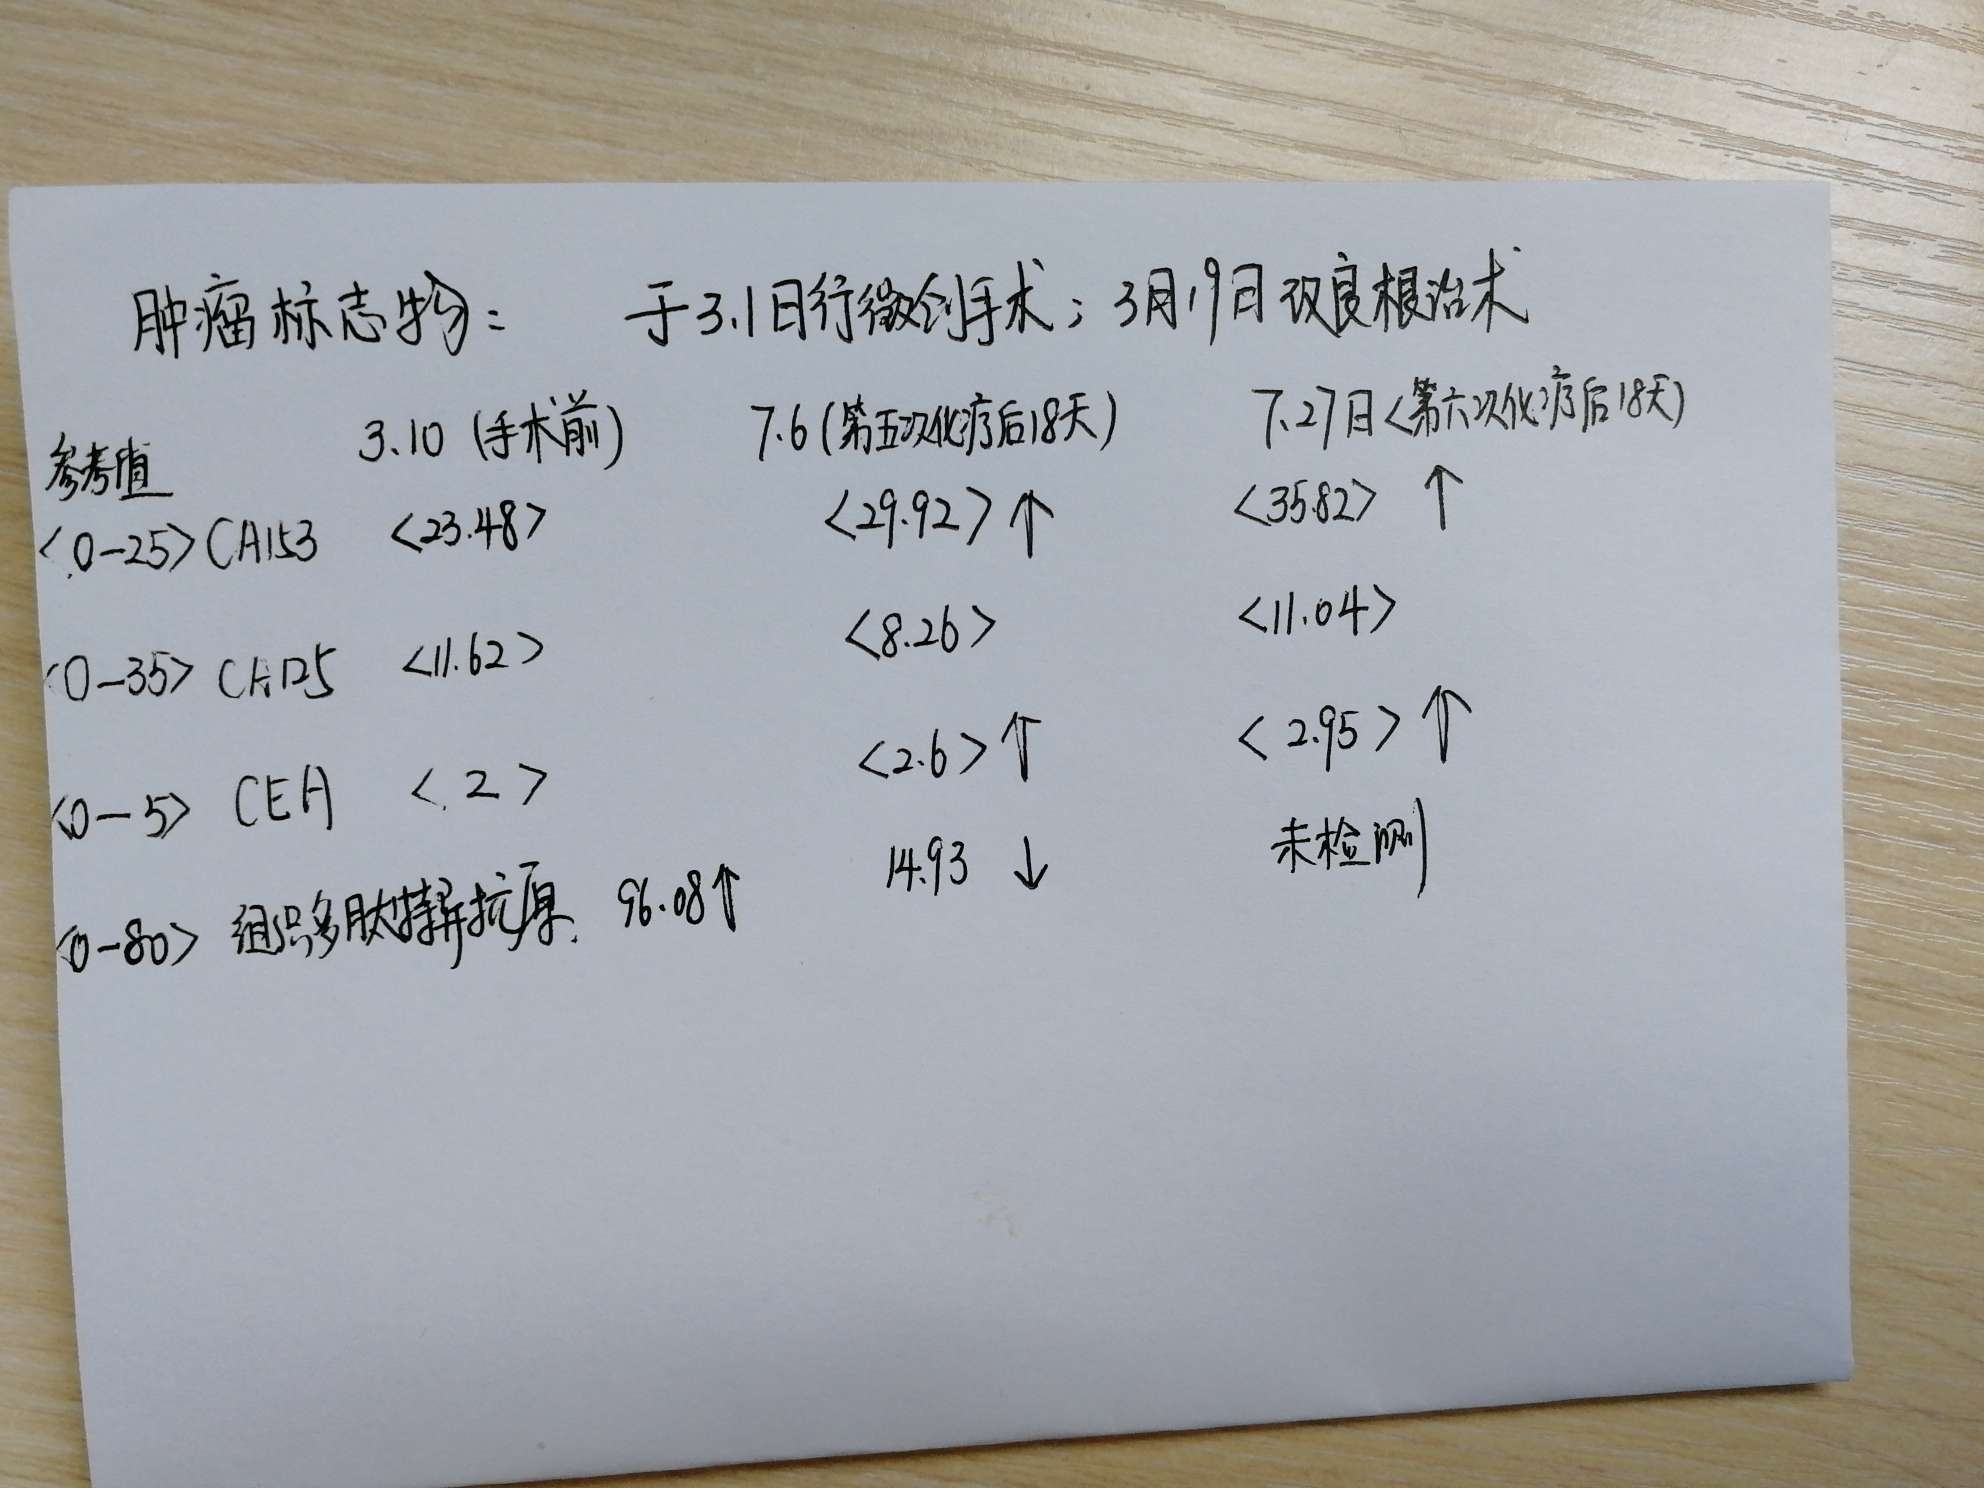 肿瘤标志物： 于3.1日行微创手术；3月19日改良根治术
参考值 3.10 (手术前) 7.6 (第五次化疗后18天) 7.27日<第六次化疗后18天)
<0-25> CA153 <23.48> <29.92> ↑ <35.82> ↑
<0-35> CA125 <11.62> <8.26> <11.04>
<0-5> CEA <2> <2.6> ↑ <2.95> ↑
<0-80> 组织多肽特异抗原. 96.08↑ 14.93 ↓ 未检测